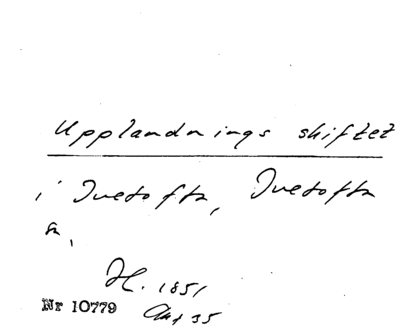 Upplandnings skiftet
i Ivetofta, Ivetofta
sn,
H. 1851
Nr 10779 Akt 35